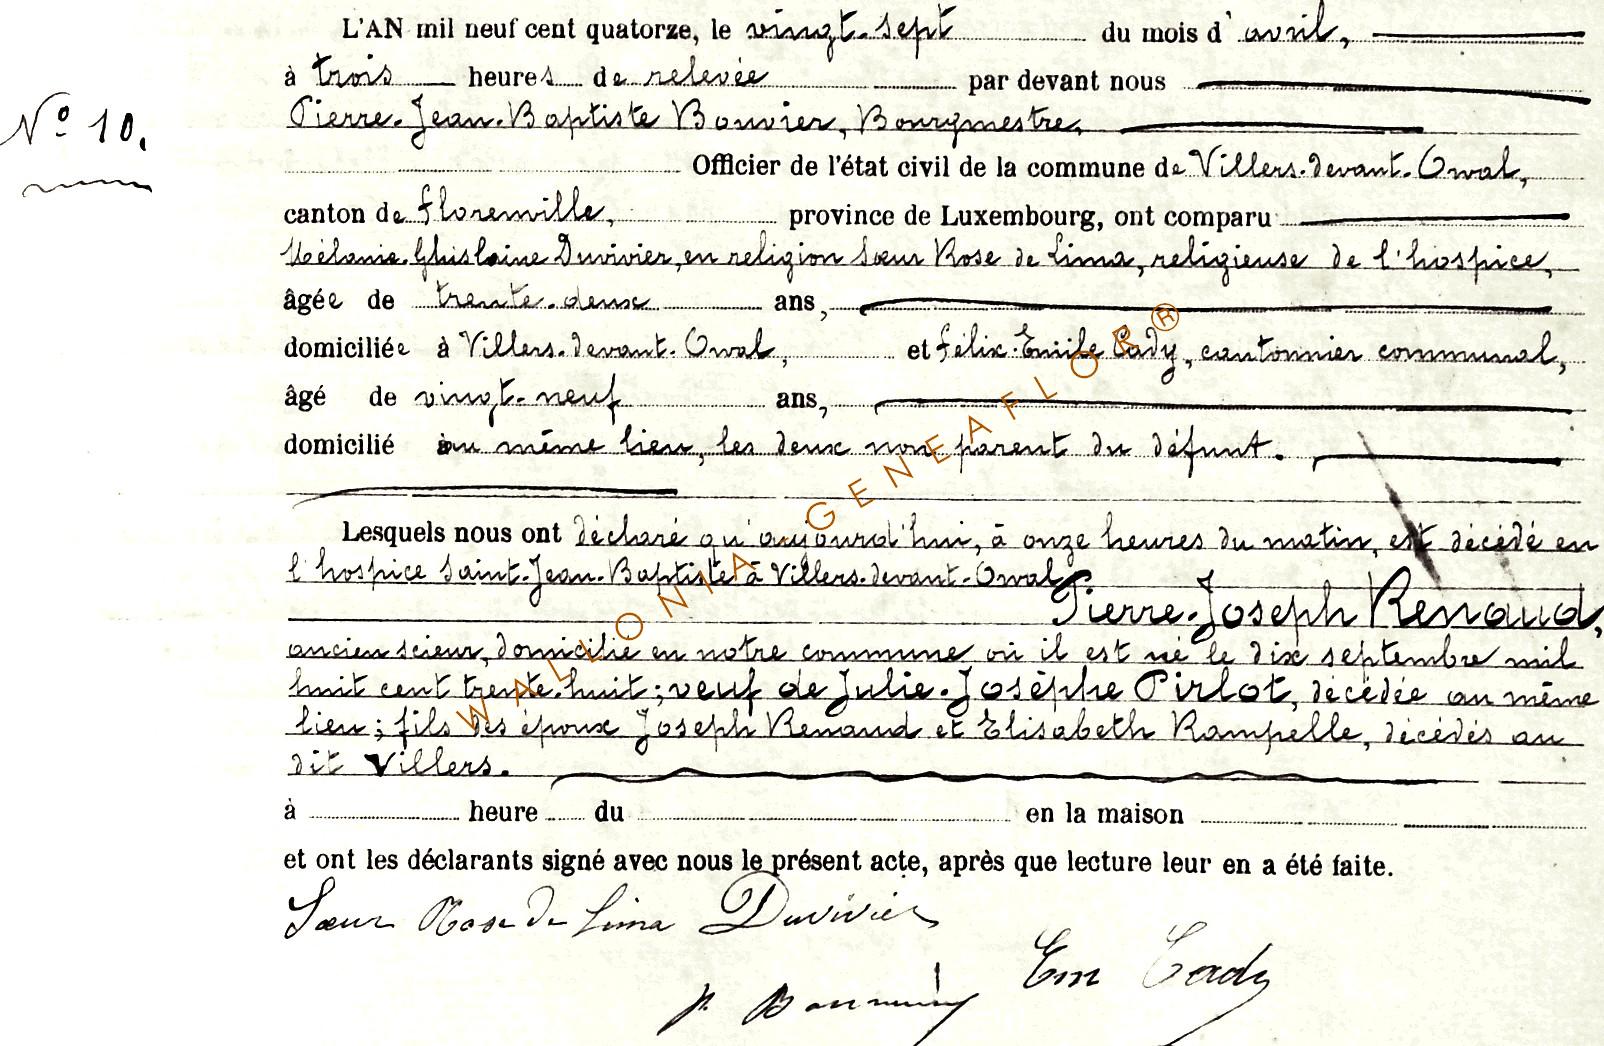 L'AN mil neuf cent quatorze, le vingt-sept du mois d'avril,
à trois heures de relevée par devant nous
Nº 10.
Pierre-Jean-Baptiste Bouvier, Bourgmestre,
Officier de l'état civil de la commune de Villers-devant-Orval,
canton de Florenville, province de Luxembourg, ont comparu
Mélanie-Ghislaine Duvivier, en religion Sœur Rose de Lima, religieuse de l'hospice,
âgée de trente-deux ans,
domiciliée à Villers-devant-Orval, et Félix-Emile Cady, cantonnier communal,
âgé de vingt-neuf ans,
domicilié au même lieu, les deux non parent du défunt.
Lesquels nous ont déclaré qu'aujourd'hui, à onze heures du matin, est décédé en
l'hospice Saint-Jean-Baptiste à Villers-devant-Orval,
Pierre-Joseph Renaud,
ancien scieur, domicilié en notre commune où il est né le dix septembre mil
huit cent trente-huit; veuf de Julie-Josèphe Pirlot, décédée au même
lieu; fils des époux Joseph Renaud et Elisabeth Rampelle, décédés au
dit Villers.
à heure du en la maison
et ont les déclarants signé avec nous le présent acte, après que lecture leur en a été faite.
Sœur Rose de Lima Duvivier
Em Cady
WALLONIA - GENEAFLOR®